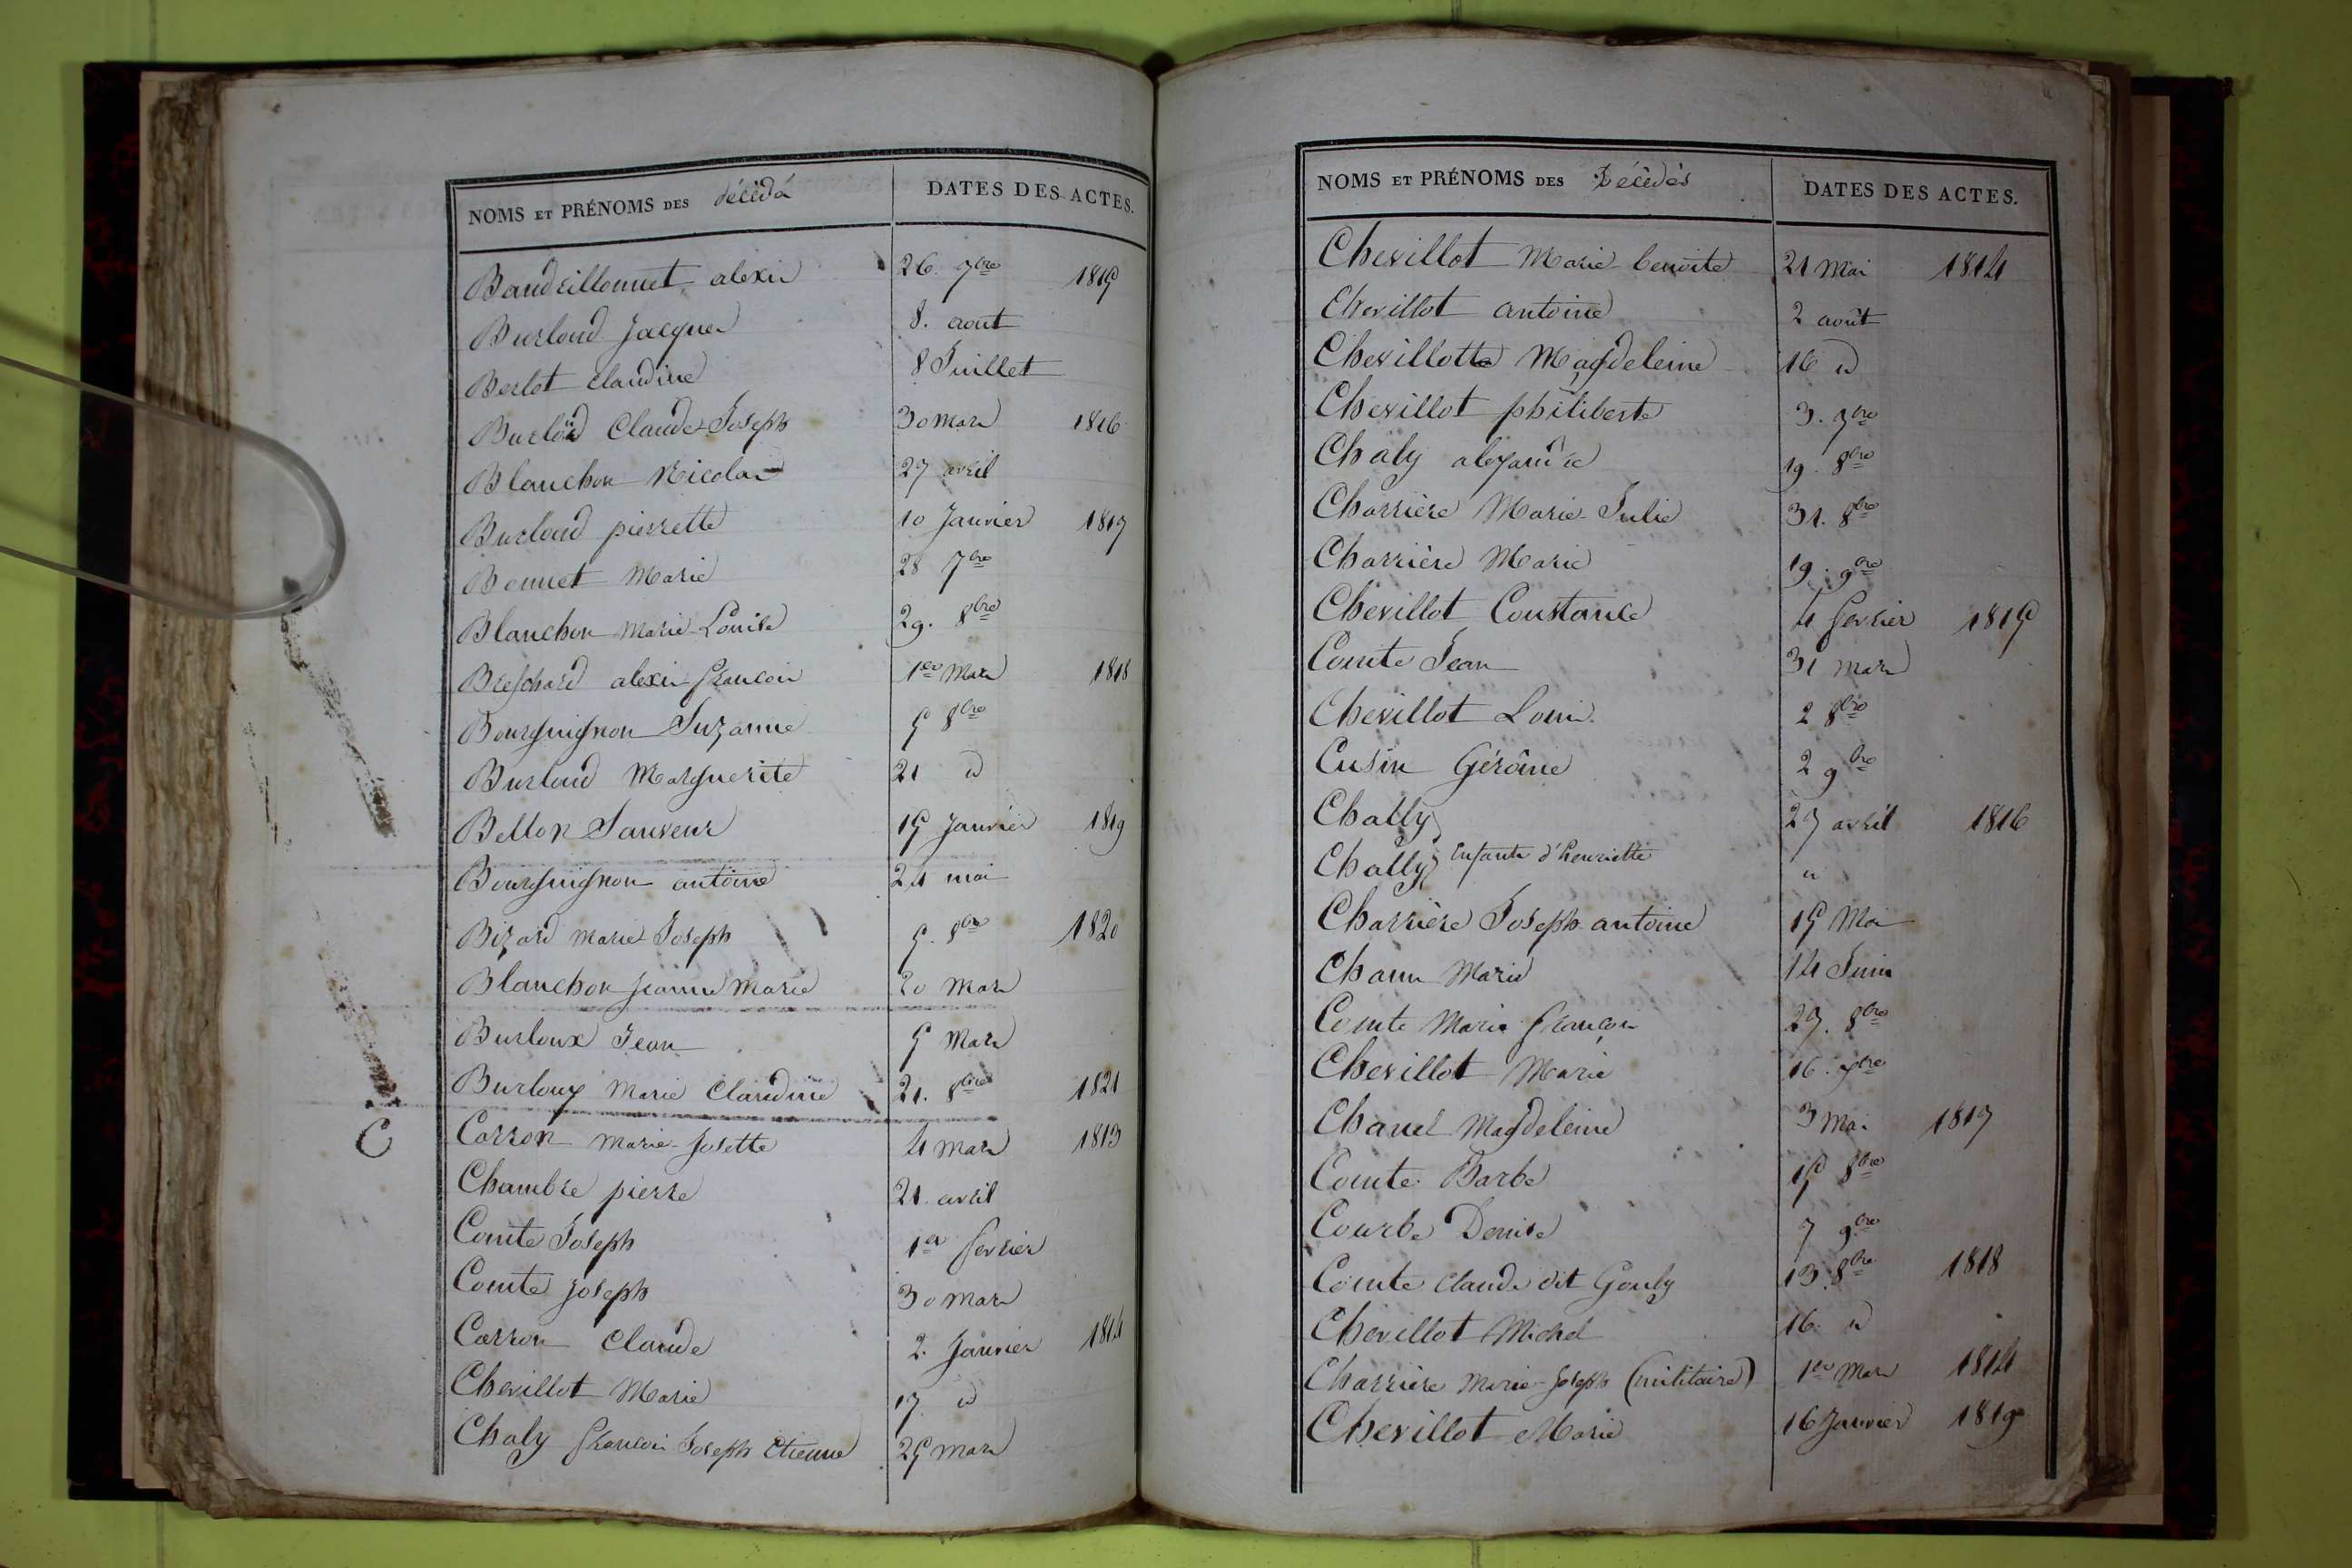 NOMS ET PRÉNOMS DES décédés DATES DES ACTES.
Baudrillonnet alexis 26. 7bre 1815
Burloud Jacques 8. aout
Berlot Claudine 8 Juillet
Burloud Claude Joseph 30 mars 1816
Blanchon Nicolas 27 avril
Burloud pierrette 10 Janvier 1817
Bonnet Marie 28 7bre
Blanchon Marie Louise 29. 8bre
Breschard alexis françois 1er Mars 1818
Bourguignon Suzanne 5 8bre
Burloud Marguerite 21 id
Bellon Sauveur 15 Janvier 1819
Bourguignon antoine 24 mai
Bizard Marie Joseph 5. 8bre 1820
Blanchon Jeanne Marie 20 Mars
Burloux Jean 5 Mars
Burloux Marie Claudine 21. 8bre 1821
C
Carron Marie Josette 4 mars 1813
Chambre pierre 21. avril
Comte Joseph 1er fevrier
Comte Joseph 30 mars
Carron Claude 2. Janvier 1814
Chevillot Marie 17 id
Chaly françois Joseph Etienne 25 mars
NOMS ET PRÉNOMS DES Décédés DATES DES ACTES.
Chevillot Marie benoite 21 Mai 1814
Chevillot antoine 2 août
Chevillotte Magdeleine 16 id
Chevillot philiberte 3. 7bre
Chaly 19. 8bre
Charrière Marie Julie 31. 8bre
Charrière Marie 19. 9bre
Chevillot Constance 4 fevrier 1815
Comte Jean 31 mars
Chevillot Louis 2 8bre
Cusin Gérôme 2 9bre
Chally 27 avril 1816
Chally Enfants d'henriette "
Charrière Joseph antoine 15 Mai
Chanu Marie 14 Juin
Comte Marie françois 27. 8bre
Chevillot Marie 16. 9bre
Chanel Magdeleine 3 Mai 1817
Comte Barbe 15 8bre
Courbe Denise 7 9bre
Comte Claude dit Gouly 13. 8bre 1818
Chevillot Michel 16. id
Charrière Marie Joseph (militaire) 1er Mars 1814
Chevillot Marie 16 Janvier 1819